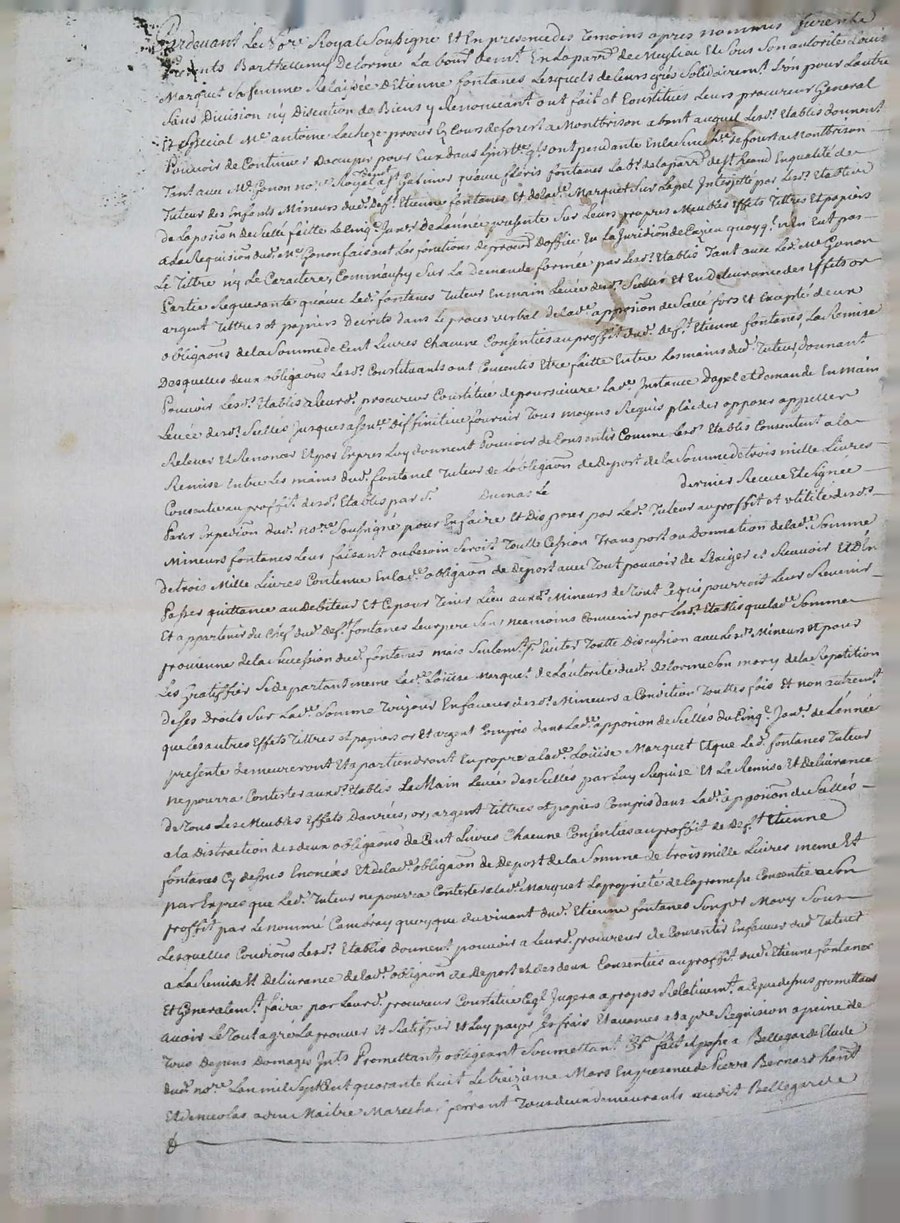 Pardevant Le No.re Royal Soussigné Et En presence des Temoins apres nommés furent
presents Barthellemy Delorme Laboureur demt. En La parr.e de Neylieu Et de Sous Son autorité Louise
Marquet Sa femme Relaissée D'Etienne fontanes Lesquels de Leurs grés Solidairemt. L'un pour L'autre
Sans Division ny Discution de Biens y Renonceant ont fait et Constitués Leurs procureur General
Et Special Me. antoine Lacheze procur Ez Cours de forest a Montbrison abent auquel Lesd. Etablis donnent
Pouvoir de Continuer D'occuper pour Eux dans L'inst.ce qls ont pendante En La Sen.ée de forest a Montbrison
Tant avec Me. Gonon no.re Royal a St. Galmier qu'avec floris fontanes Lab.r de La parr.e de St. En qualité de
Tuteur des Enfants Mineurs dud. deft. Etienne fontanes Et de Lad.e Marquet Sur L'apel Interjetté par Lesd. Etablis
de L'aposion de Scellé faitte Le Cinq.e Janer. de L'année presente Sur Leurs propres Meubles Effets Tittres et papiers
a La Requision dud. Me. Gonon faisant Les fonctions de procur. d'office En La Juridion de quoyqu'il n'En Eut pas
Le Tittre ny Le Caractere, Comm'aussy Sur La demande formée par Lesd. Etablis Tant avec Led. Me. Gonon
Partie Requerante qu'avec Led. fontanes Tuteur En main Levée desd. Scellés Et En Delivrance des Effets or
argent Tittres et papiers decrits dans Le proces verbal de Lad.e apposion de Scellé fors et Excepté deux
obligaons de La Somme de Cent Livres Chacune Consenties au proffit dud. deft. Etienne fontanes La Remise
Desquelles deux obligaons Lesd. Constituants ont Consentis Etre faitte Entre Les mains dud. Tuteur, donnant
Pouvoir Lesd. Etablis a Leurd. procureur Constitué de poursuivre Lad.e Instance D'apel et Demande En Main
Levée desd. Scellés Jusques a Sen.ce Diffinitive fournir Tous moyens Requis plaider opposer appeller
Relever Et Renoncer Et par Expres Luy donnent Pouvoir de Consentir Comme Lesd. Etablis Consentent a La
Remise Entre Les mains dud. fontanes Tuteur de L'obligaon de Deport de La Somme de trois mille Livres
Consentie au proffit desd. Etablis par Sr. Dumas Le dernier Receue Et Signée
Par Expedion dud. no.re Soussigné pour En faire Et Disposer par Led. Tuteur au proffit et utilité desd.
Mineurs fontanes Leur faisant au besoin Seroit Toutte Cession Transport ou Donnation de Lad.e Somme
de trois Mille Livres Contenue En Lad.e obligaon de Deport avec Tout pouvoir de L'Exiger et Recevoir Et D'En
Passer quittance au Debiteur Et Ce pour Tenir Lieu auxd. Mineurs de Tout Ce qui pourroit Leur Revenir
Et appartenir du Chef dud. deft. fontanes Leur pere Sans neamoins Convenir par Lesd. Etablis que Lad.e Somme
provienne de La Succession dud. fontanes mais Seulemt. p.r Eviter Toutte Discussion avec Lesd. Mineurs Et pour
Les Gratiffier Se departant meme Lad.e Loüise Marquet de L'autorité dud. Delorme Son mary de La Repetition
de Ses Droits Sur Lad.e Somme Toujour En faveur desd. Mineurs a Condition Touttes fois Et non autremt.
que Les autres Effets Tittres et papiers or Et argent Compris dans Lad.e apposion de Scellés du Cinq.e Janv. de L'année
presente demeureront Et apartiendront En propre a Lad.e Loüise Marquet Et que Led. fontanes Tuteur
ne pourra Contester auxd. Etablis La Main Levée des Scellés par Luy Requise Et La Remise Et Delivrance
de Tous Les Meubles Effets Danrées, or, argent Tittres et papiers Compris dans Lad.e apposion de Scellés
a La Distraction des deux obligaons de Cent Livres Chacune Consenties au proffit de Deft. Etienne
fontanes Cy dessus Enoncées Et de Lad.e obligaon de Deport de La Somme de trois mille Livres meme Et
par Expres que Led. Tuteur ne pourra Contester a Lad.e Marquet La proprieté de La promesse Consentie a Son
proffit par Le nommé Cambray quoyque du vivant dud. Etienne fontanes Son pr. Mary Sous
Lesquelles Condions Lesd. Etablis donnent pouvoir a Leurd. procureur de Consentir En faveur dud. Tuteur
a La Remise Et Delivrance de Lad.e obligaon de Deport et des deux Consenties au proffit dud. Etienne fontanes
Et Generalemt. faire par Leurd. procureur Constitué Ce ql. Jugera a propos Relativemt. a Ce que dessus promettant
avoir Le Tout agreé L'aprouver Et Ratiffier et Luy payer Ses frais Et avances a Sa p.re Requision a peine de
Tous Depens Domages Jnts. Promettants obligeant Soumettant fait Et passé a Bellegarde Etude
dud. no.re L'an mil Sept Cent quarante huit Le treizieme Mars En presence de Pierre Bernard
Et de Nicolas Maitre Marechal ferrant Tous deux demeurants aud. Bellegarde